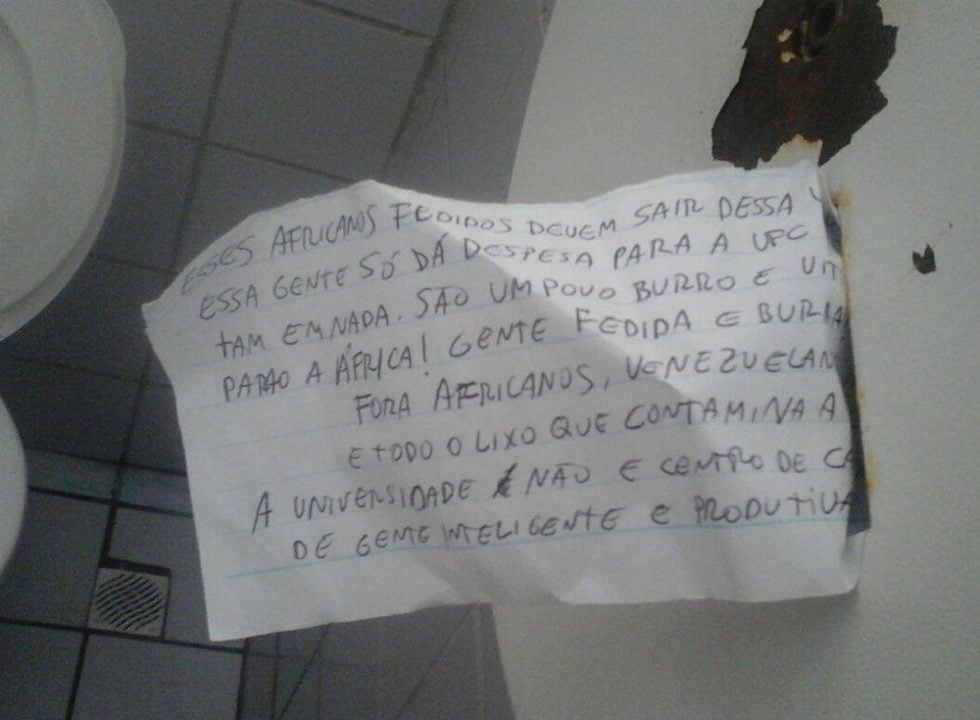 ESSES AFRICANOS FEDIDOS DEVEM SAIR DESSA
ESSA GENTE SÓ DÁ DESPESA PARA A UFC
TAM EM NADA. SÃO UM POVO BURRO E
PARAO A ÁFRICA! GENTE FEDIDA E BURRA
FORA AFRICANOS, VENEZUELAN
E TODO O LIXO QUE CONTAMINA A
A UNIVERSIDADE NÃO E CENTRO DE
DE GENTE INTELIGENTE E PRODUTIVA